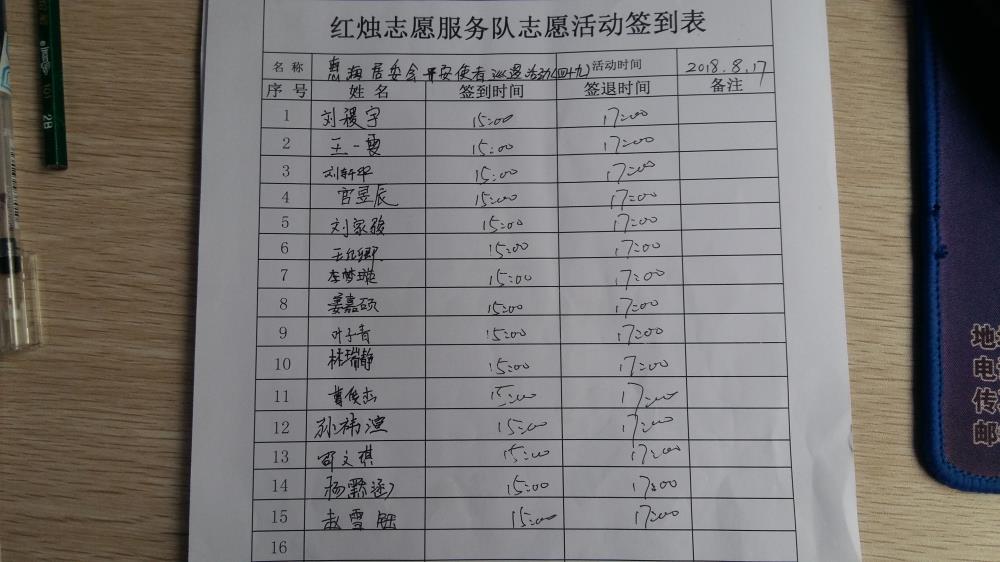 红烛志愿服务队志愿活动签到表
名称 惠海居委会平安使者巡逻活动(四十九) 活动时间 2018.8.17
序号 姓名 签到时间 签退时间 备注
1 刘稷宇 15:00 17:00
2 王一雯 15:00 17:00
3 刘轩华 15:00 17:00
4 宫昱辰 15:00 17:00
5 刘家骏 15:00 17:00
6 15:00 17:00
7 李梦璇 15:00 17:00
8 姜嘉硕 15:00 17:00
9 叶子青 15:00 17:00
10 林瑞静 15:00 17:00
11 15:00 17:00
12 孙祎澶 15:00 17:00
13 邵文祺 15:00 17:00
14 杨黥涵 15:00 17:00
15 赵雪 15:00 17:00
16
2B
地
电
传
邮